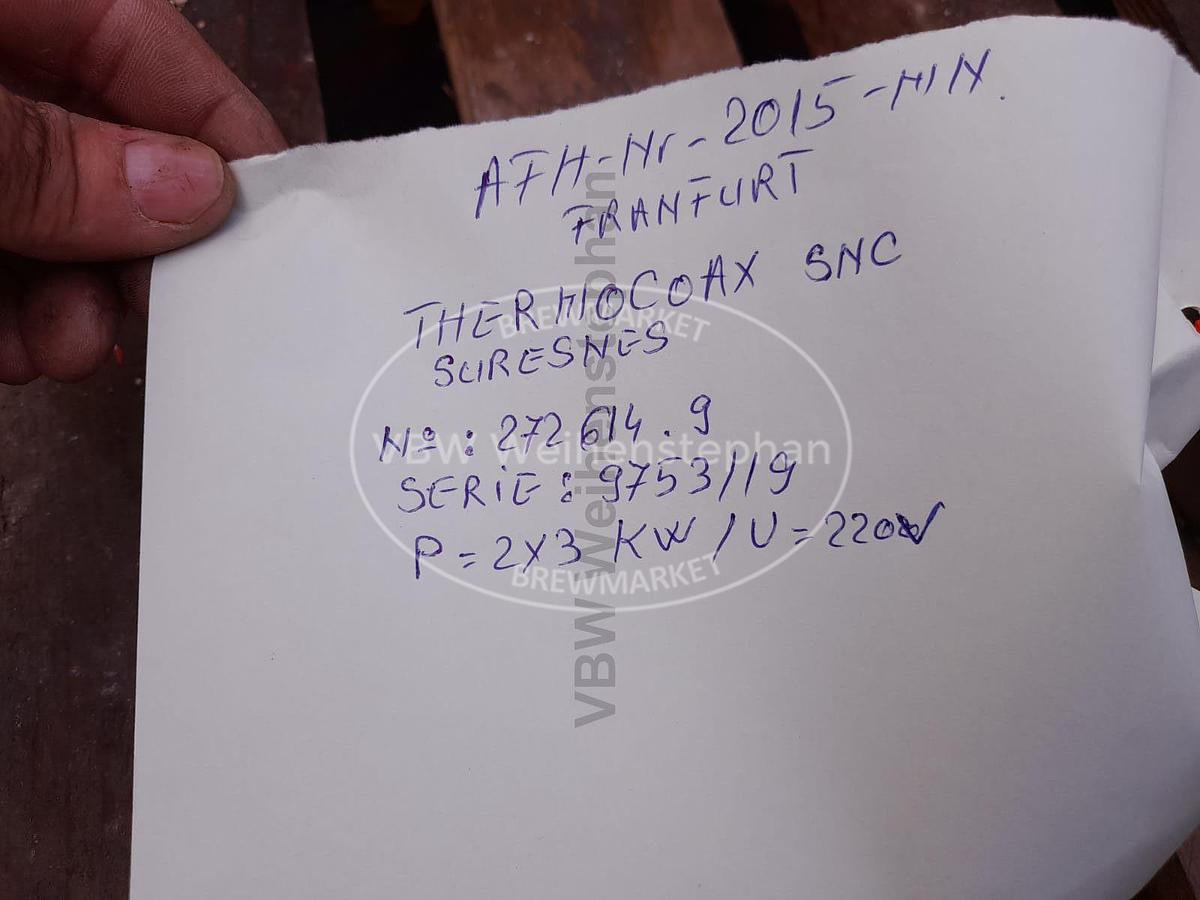 AFH-Nr-2015-MIX.
FRANFURT
THERMOCOAX SNC
SURESNES
Nº : 272 614 . 9
SERIE : 9753/19
P = 2X3 KW / U = 220V
BREWMARKET
VBW Weihenstephan
BREWMARKET
VBW Weihenstephan